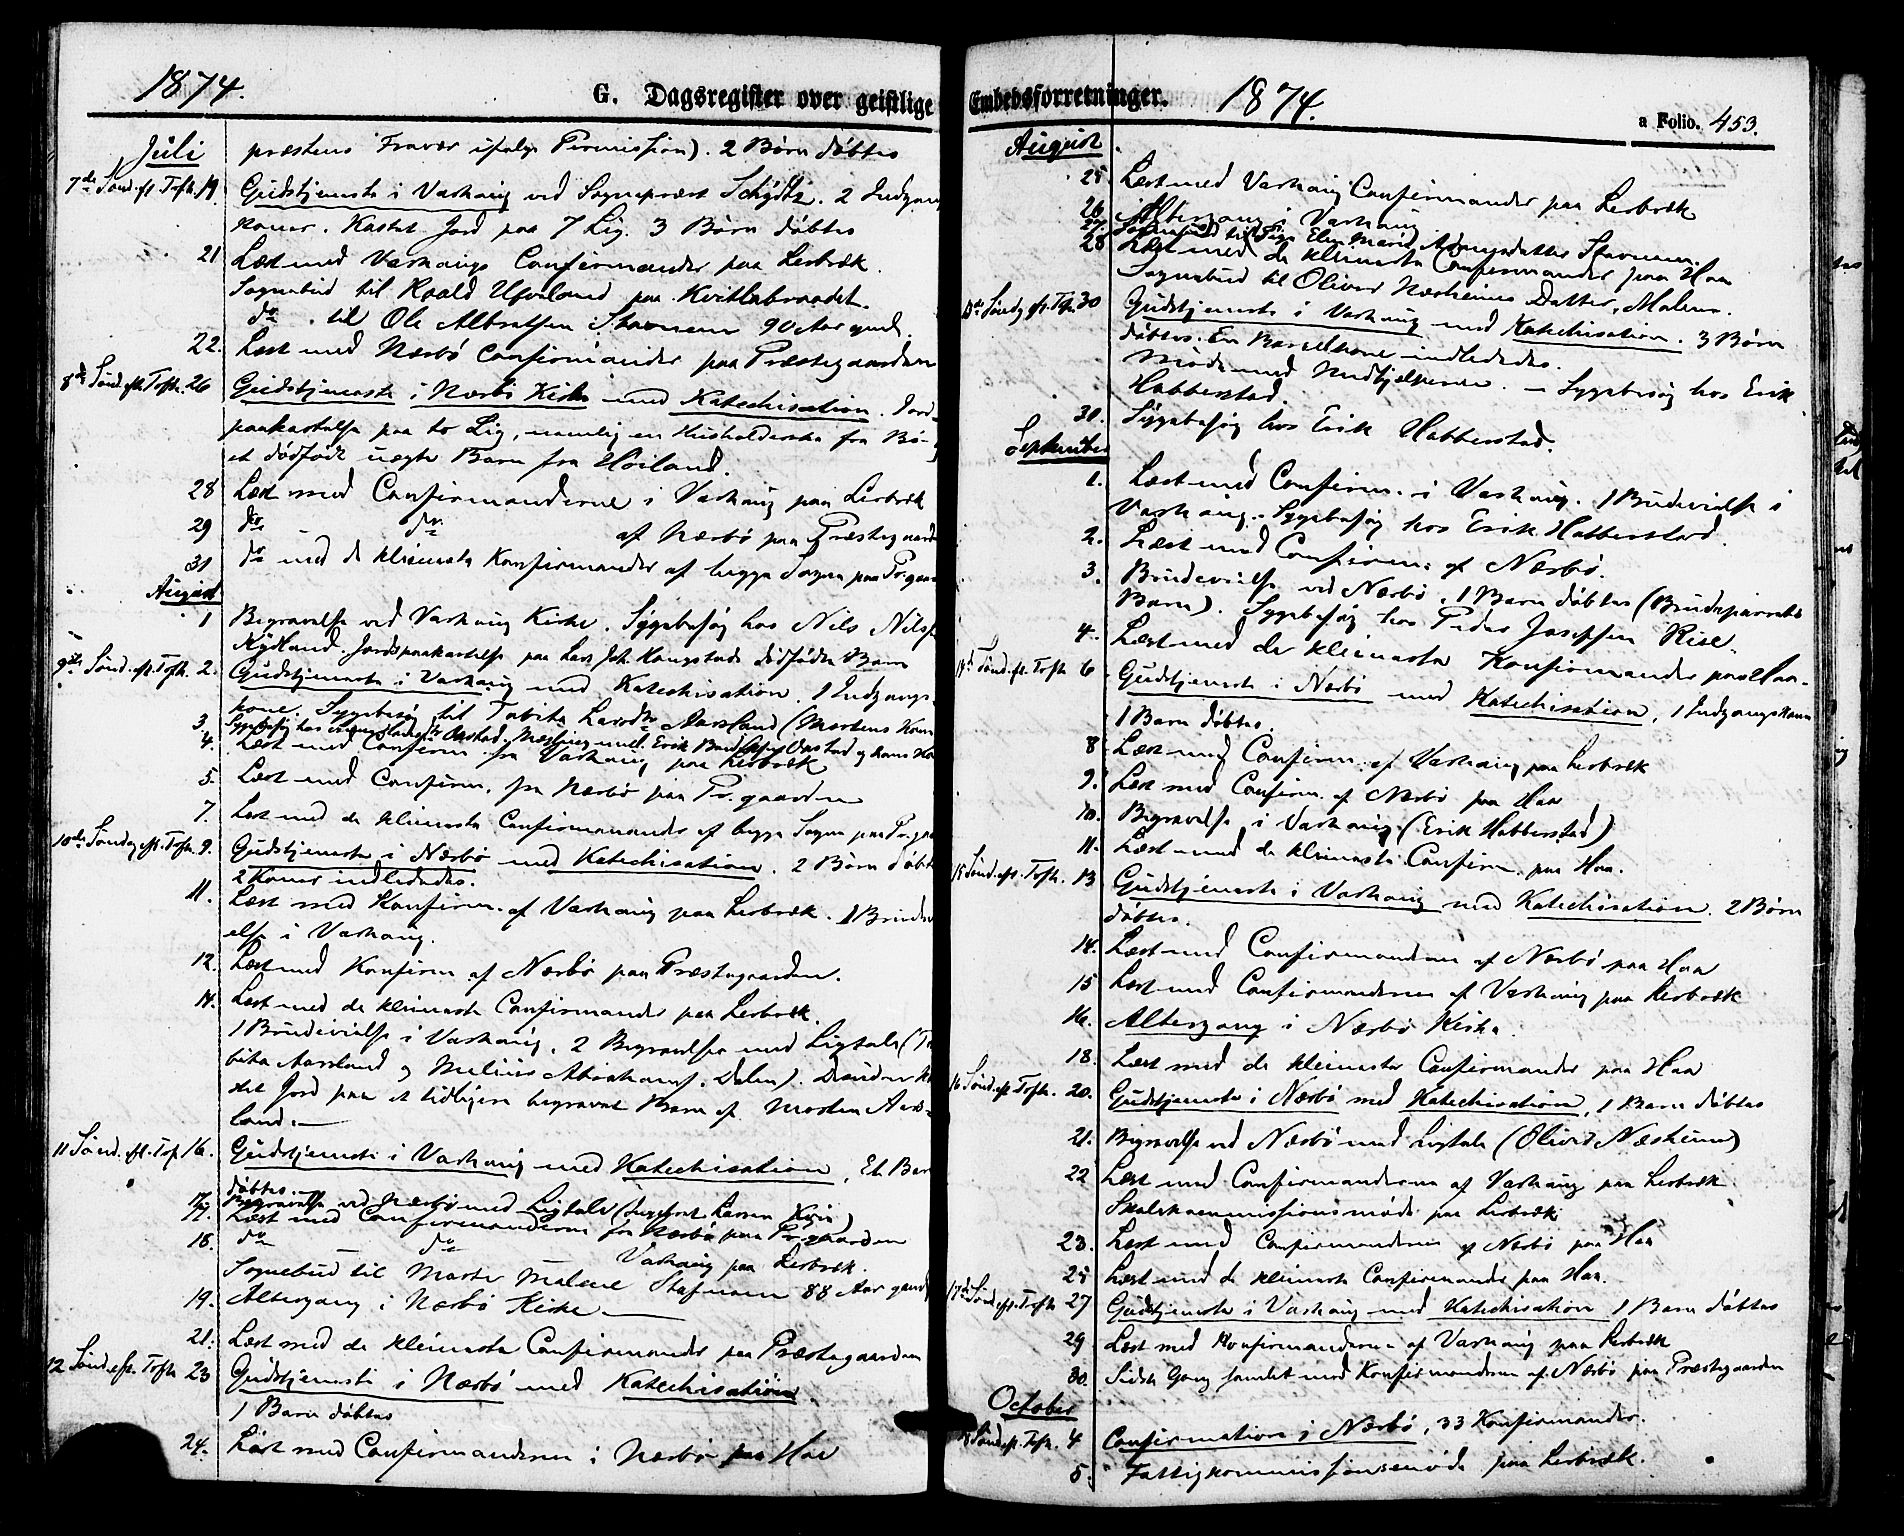 1874.
G. Dagsregister over geistlige
Juli
præstens Fravær ifølge Permission). 2 Børn døbtes
7de Sønd. eft. Trefh. 19. Gudstjeneste i Varhaug ved Sognepræst Schjøtz. 2 Indgangs
koner. Kastet Jord paa 7 Lig. 3 Børn døbtes
21 Læst med Varhaugs Confirmander paa Lerbræk.
Sognebud til Roald Ueland paa Kvitlabraadet.
do. til Ole Albretsen Stavnem 90 Aar gml.
22. Læst med Nærbø Confirmander paa Præstegaarden
8de Sønd. eft. Trefh. 26 Gudstjeneste i Nærbø Kirke med Katechisation. Jord-
paakastelse paa to Lig, nemlig en Husholderske fra Bø-
et dødfødt uægte Barn fra Høiland.
28 Læst med Confirmanderne i Varhaug paa Lerbræk
29 do do af Nærbø paa Præstegaarden
31 do med de kleineste Konfirmander af begge Sogne paa Pr.gaar
August
1 Begravelse ved Varhaug Kirke. Sygebesøg hos Nils Nils
Rydland. Jordspaakastelse paa Lars Joh. Haugstads dødfødte Barn
9de Sønd. eft. Trefh. 2. Gudstjeneste i Varhaug med Katechisation. 1 Indgangs-
kone. Sygebesøg til Tabita Larsdtr Aarsland (Mortens Kone
3. Sygebesøg hos Opstad, Mægling mell. Erik Opstad og hans
4. Læst med Confirm. fra Varhaug paa Lerbræk
5. Læst med Confirm. fra Nærbø paa Pr. gaarden
7. Læst med de kleineste Confirmander af begge Sogne paa Pr.gaa
10de Søndag eft. Trefh. 9. Gudstjeneste i Nærbø med Katechisation. 2 Børn døbt
2 Koner indlededes.
11. Læst med Konfirm. af Varhaug paa Lerbræk. 1 Brudevi
else i Varhaug.
12. Læst med Konfirm af Nærbø paa Præstegaarden.
14. Læst med de kleineste Confirmander paa Lerbræk.
1 Brudevielse i Varhaug. 2 Begravelser med Ligtale (Ta
bita Aarsland og Melius Abrahams. Dalen). Desuden ka
stet Jord paa et tidligere begravet Barn af Morten Aars-
land.
11 Sønd. eft. Tref 16. Gudstjeneste i Varhaug med Katechisation. Et Barn
døbtes.
17. Begravelse ved Nærbø med Ligtale ( Larsen Kvie)
17. Læst med Confirmanderne fra Nærbø paa Pr.gaarden
18. do do Varhaug paa Lerbræk.
Sognebud til Marte Malene Stafnem 88 Aar gaml
19. Altergang i Nærbø Kirke
21. Læst med de kleineste Confirmander paa Præstegaarden
12 Sønd. eft. Trefh 23 Gudstjeneste i Nærbø med Katechisation.
1 Barn døbtes
24. Læst med Confirmanderne i Nærbø paa Haa
Embedsforretninger. 1874.
a Folio. 453.
August
25 Læst med Varhaug Confirmander paa Lerbræk
26 Altergang i Varhaug.
27. Sognebud til Elen Marie Stavnem.
28 Læst med de kleineste Confirmander paa Haa
Sognebud til Oliver Næsheims Datter, Malene.
13de Søndag eft. Tref. 30 Gudstjeneste i Varhaug med Katechisation. 3 Børn
døbtes. En Barselkone indlededes.
Møde med Medhjælperne. — Sygebesøg hos Erik
Habberstad.
31. Sygebesøg hos Erik Habberstad.
September
1. Læst med Confirm. i Varhaug. 1 Brudevielse i
Varhaug. Sygebesøg hos Erik Habberstad.
2. Læst med Confirm. af Nærbø.
3. Brudevielse ved Nærbø. 1 Barn døbtes (Brudeparrets
Barn). Sygebesøg hos Peder Josefsen Rise.
4. Læst med de kleineste Konfirmander paa Haa.
14de Sønd. eft. Trefh 6 Gudstjeneste i Nærbø med Katechisation. 1 Indgangskone
1 Barn døbtes.
8 Læst med Confirm. af Varhaug paa Lerbræk
9. Læst med Confirm. af Nærbø paa Haa
10. Begravelse i Varhaug (Erik Habberstad)
11. Læst med de kleineste Confirm. paa Haa.
15 Sønd. eft. Trefh. 13 Gudstjeneste i Varhaug med Katechisation. 2 Børn
døbtes.
14. Læst med Confirmanderne af Nærbø paa Haa
15 Læst med Confirmanderne af Varhaug paa Lerbræk
16. Altergang i Nærbø Kirke.
18. Læst med de kleineste Confirmander paa Haa
16 Sønd. eft Trefh. 20. Gudstjeneste i Nærbø med Katechisation, 1 Barn døbtes
21. Begravelse ved Nærbø med Ligtale (Oliver Næsheim)
22 Læst med Confirmanderne af Varhaug paa Lerbræk.
Skolekommissionsmøde paa Lerbræk
23. Læst med Confirmanderne af Nærbø paa Haa
25 Læst med de kleineste Confirmander paa Haa.
17de Sønd. eft. Trefh 27 Gudstjeneste i Varhaug med Katechisation 1 Barn døbtes
29 Læst med Konfirmanderne af Varhaug paa Lerbræk
30. Sidste Gang samlet med Konfirmanderne af Nærbø paa Præstegaarden
October
18 Sønd. eft. Trefh. 4 Confirmation i Nærbø, 33 Konfirmander.
5. Fattigkommissionsmøde paa Lerbræk.